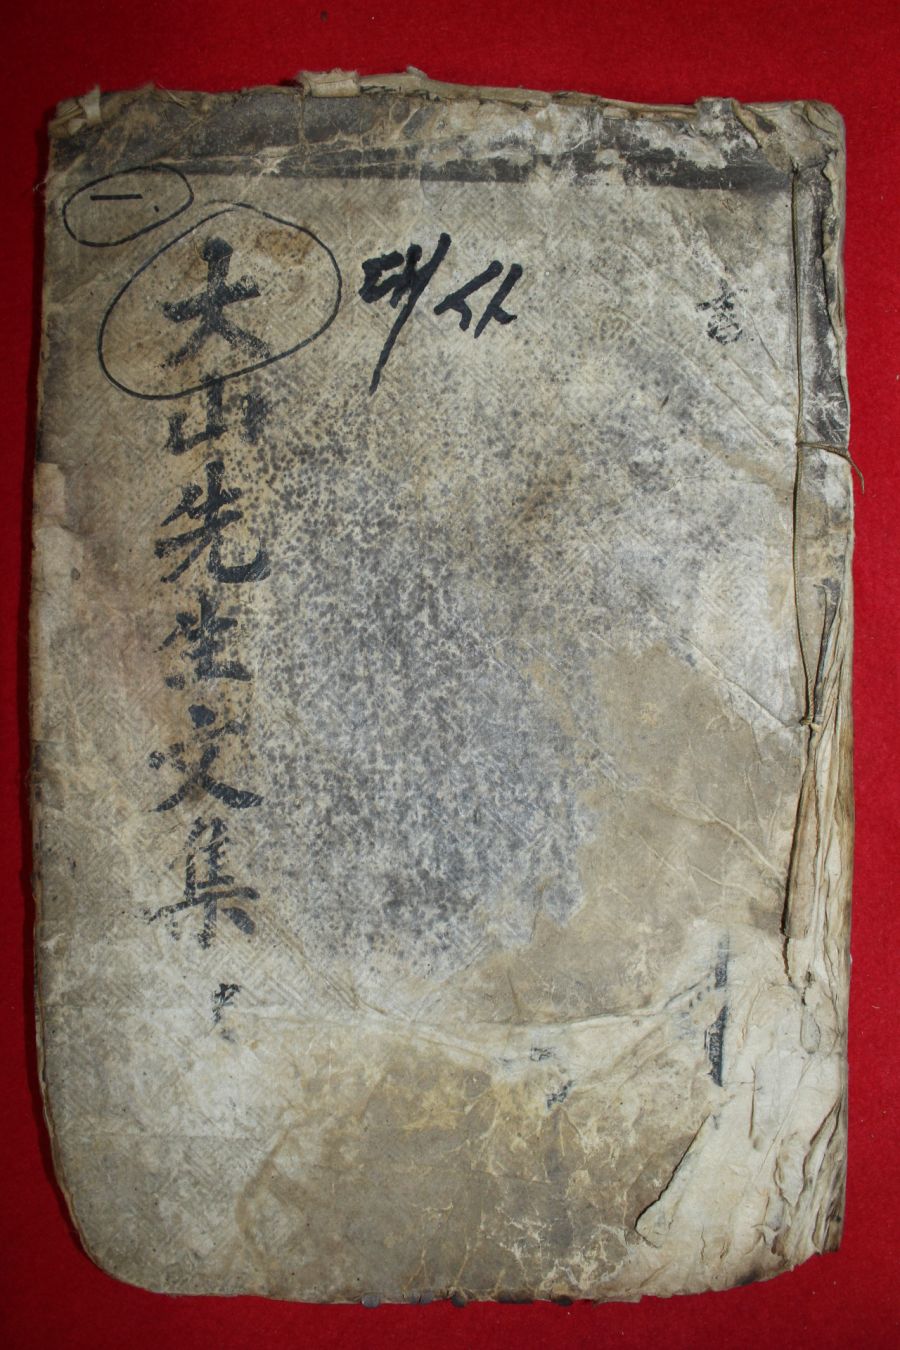 一
大山先生文集
대사
書